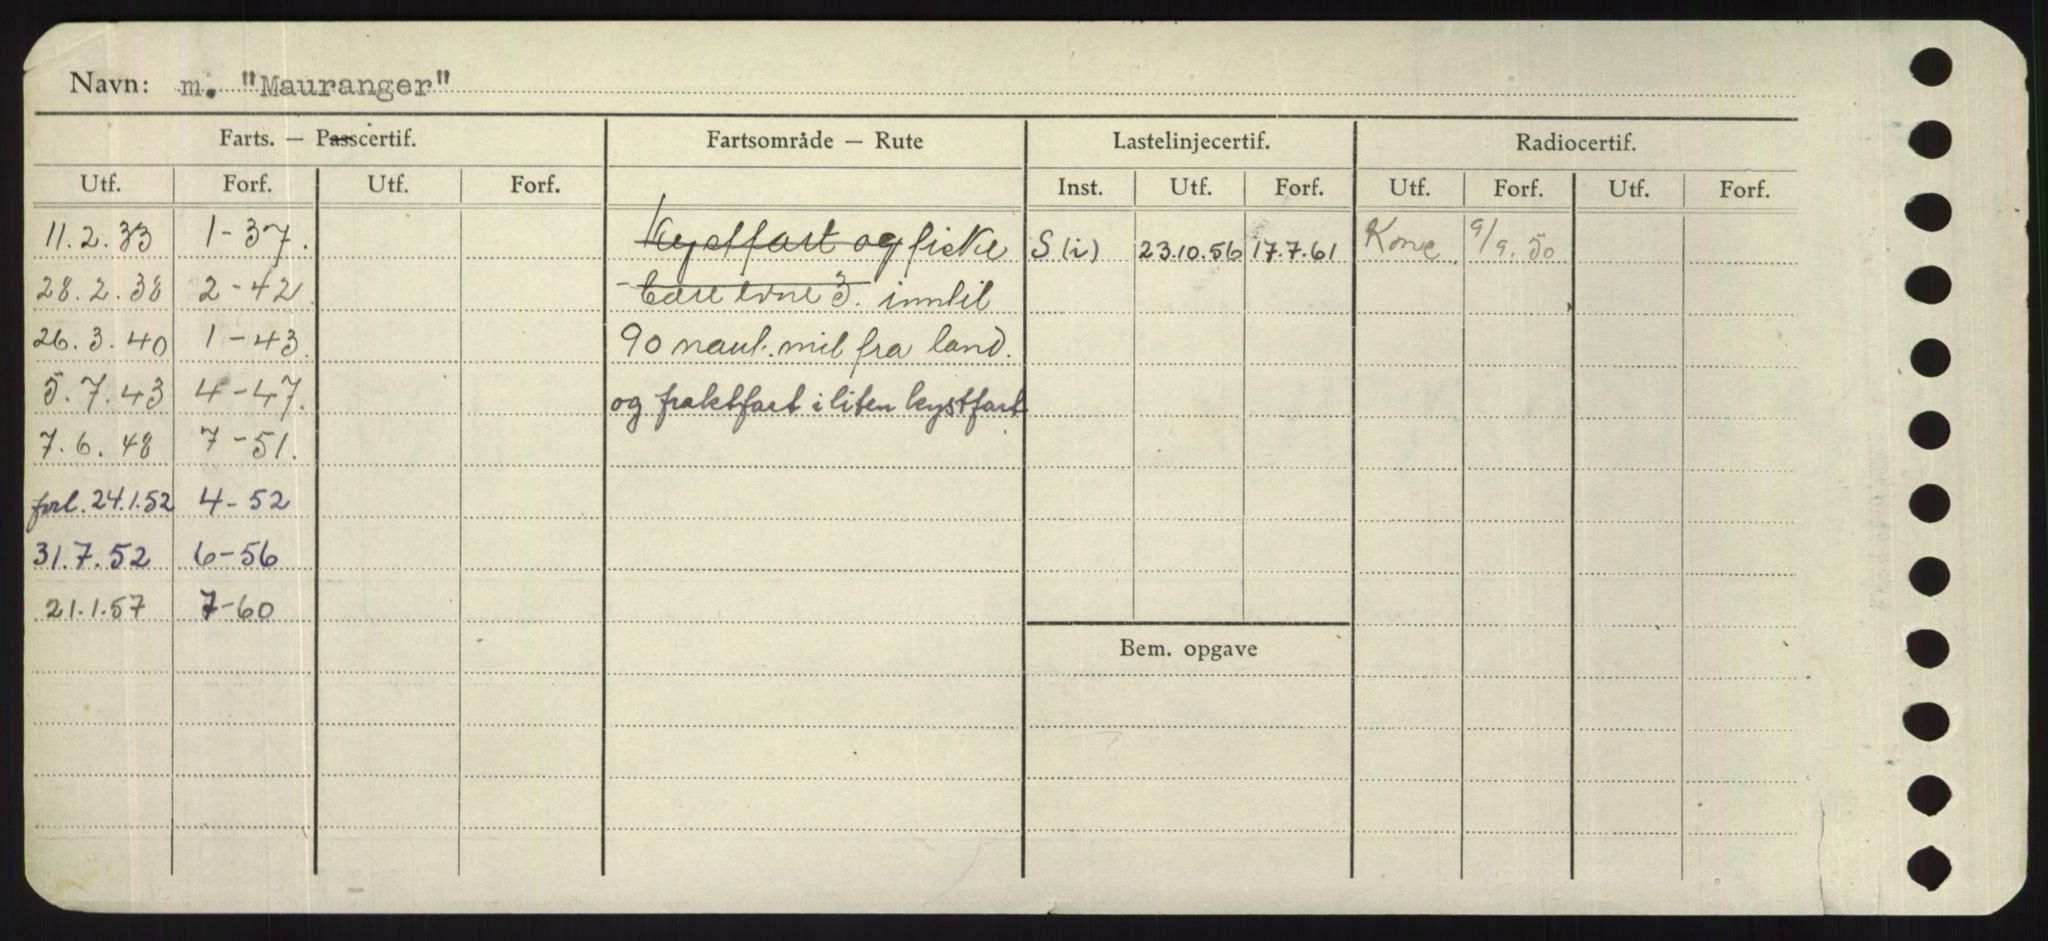 Navn: m. "Mauranger"
Farts. — Passcertif. Fartsområde — Rute Lastelinjecertif. Radiocertif.
Utf. Forf. Utf. Forf. Inst. Utf. Forf. Utf. Forf. Utf. Forf.
11.2.33 1-37. Kystfart og fiske S (i) 23.10.56 17.7.61 9/9.50
28.2.38 2-42 3. inntil
26.3.40 1-43 90 naut. mil fra land.
5.7.43 4-47. og fraktfart i liten kystfart
7.6.48 7-51.
forl. 24.1.52 4-52
31.7.52 6-56
21.1.57 7-60
Bem. opgave